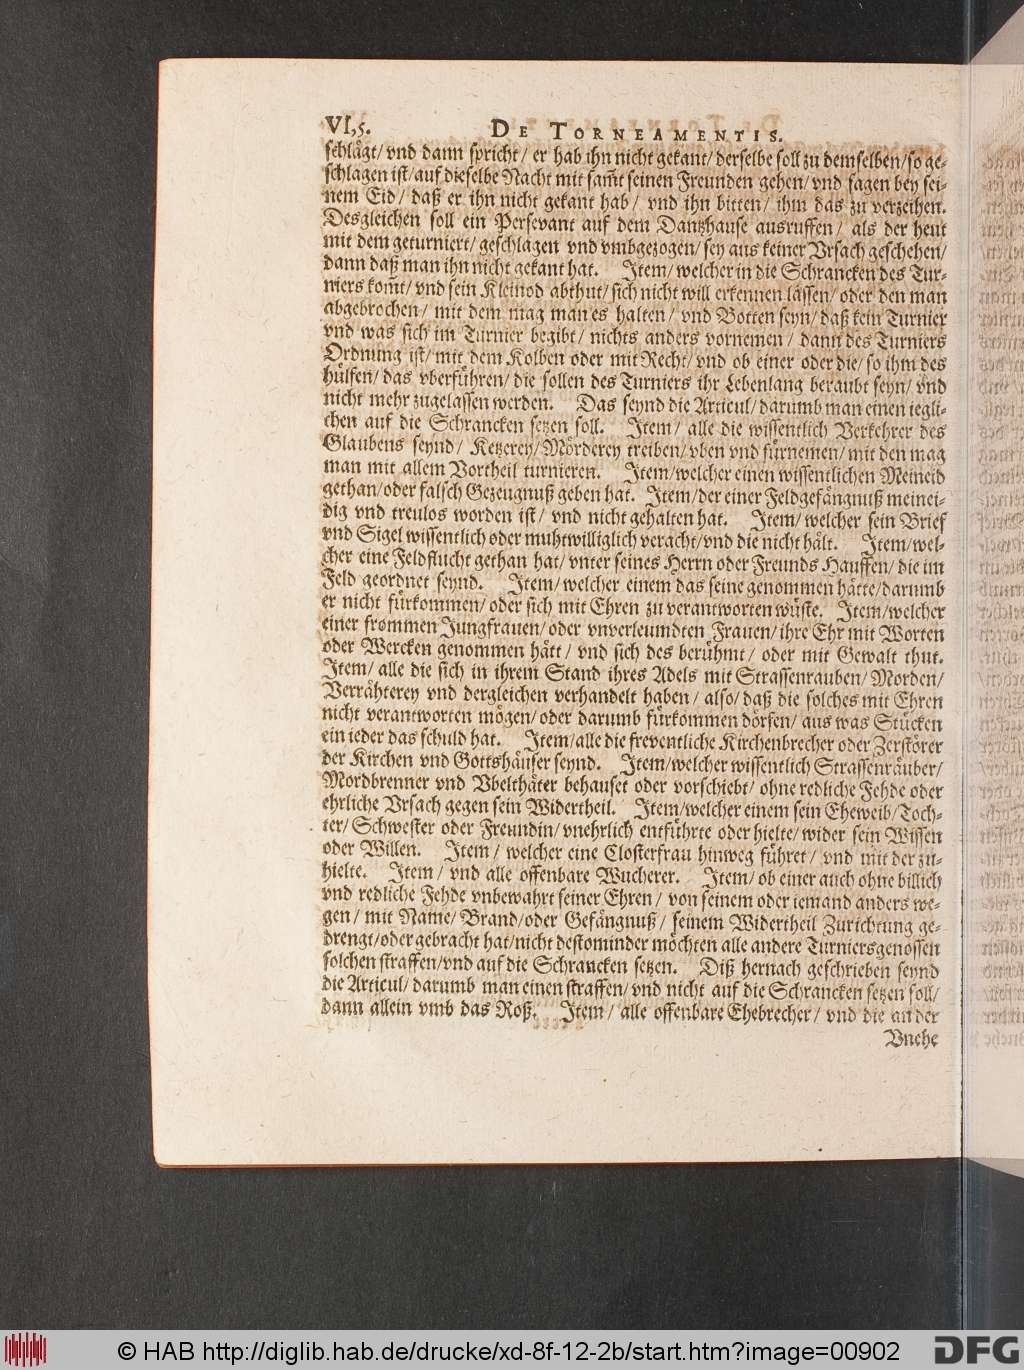 VI,5. DE TORNEAMENTIS.
schlägt/ vnd dann spricht/ er hab ihn nicht gekant/ derselbe soll zu demselben/ so ge-
schlagen ist/ auf dieselbe Nacht mit sam̃t seinen Freunden gehen/ vnd sagen bey sei-
nem Eid/ daß er ihn nicht gekant hab/ vnd ihn bitten/ ihm das zu verzeihen.
Desgleichen soll ein Persevant auf dem Dantzhause ausruffen/ als der heut
mit dem geturniert/ geschlagen vnd vmbgezogen/ sey aus keiner Vrsach geschehen/
dann daß man ihn nicht gekant hat. Item/ welcher in die Schrancken des Tur-
niers kom̃t/ vnd sein Kleinod abthut/ sich nicht will erkennen lassen/ oder den man
abgebrochen/ mit dem mag man es halten/ vnd Botten seyn/ daß kein Turnier
vnd was sich im Turnier begibt/ nichts anders vornemen/ dann des Turniers
Ordnung ist/ mit dem Kolben oder mit Recht/ vnd ob einer oder die/ so ihm des
hülfen/ das vberführen/ die sollen des Turniers ihr Lebenlang beraubt seyn/ vnd
nicht mehr zugelassen werden. Das seynd die Articul/ darumb man einen iegli-
chen auf die Schrancken setzen soll. Item/ alle die wissentlich Verkehrer des
Glaubens seynd/ Ketzerey/ Mörderey treiben/ vben vnd fürnemen/ mit den mag
man mit allem Vortheil turnieren. Item/ welcher einen wissentlichen Meineid
gethan/ oder falsch Gezeugnuß geben hat. Item/ der einer Feldgefängnuß meinei-
dig vnd treulos worden ist/ vnd nicht gehalten hat. Item/ welcher sein Brief
vnd Sigel wissentlich oder muhtwilliglich veracht/ vnd die nicht hält. Item/ wel-
cher eine Feldflucht gethan hat/ vnter seines Herrn oder Freunds Hauffen/ die im
Feld geordnet seynd. Item/ welcher einem das seine genommen hätte/ darumb
er nicht fürkommen/ oder sich mit Ehren zu verantworten wüste. Item/ welcher
einer frommen Jungfrauen/ oder vnverleumdten Frauen/ ihre Ehr mit Worten
oder Wercken genommen hätt/ vnd sich des berühmt/ oder mit Gewalt thut.
Item/ alle die sich in ihrem Stand ihres Adels mit Strassenrauben/ Morden/
Verrähterey vnd dergleichen verhandelt haben/ also/ daß die solches mit Ehren
nicht verantworten mögen/ oder darumb fürkommen dörfen/ aus was Stücken
ein ieder das schuld hat. Item/ alle die freventliche Kirchenbrecher oder Zerstörer
der Kirchen vnd Gottshäuser seynd. Item/ welcher wissentlich Strassenräuber/
Mordbrenner vnd Vbelthäter behauset oder vorschiebt/ ohne redliche Fehde oder
ehrliche Vrsach gegen sein Widertheil. Item/ welcher einem sein Eheweib/ Toch-
ter/ Schwester oder Freundin/ vnehrlich entführte oder hielte/ wider sein Wissen
oder Willen. Item/ welcher eine Closterfrau hinweg führet/ vnd mit der zu-
hielte. Item/ vnd alle offenbare Wucherer. Item/ ob einer auch ohne billich
vnd redliche Fehde vnbewahrt seiner Ehren/ von seinem oder iemand anders we-
gen/ mit Name/ Brand/ oder Gefängnuß/ seinem Widertheil Zurichtung ge-
drengt/ oder gebracht hat/ nicht destominder möchten alle andere Turniersgenossen
solchen straffen/ vnd auf die Schrancken setzen. Diß hernach geschrieben seynd
die Articul/ darumb man einen straffen/ vnd nicht auf die Schrancken setzen soll/
dann allein vmb das Roß. Item/ alle offenbare Ehebrecher/ vnd die an der
Vnehe
© HAB http://diglib.hab.de/drucke/xd-8f-12-2b/start.htm?image=00902
DFG